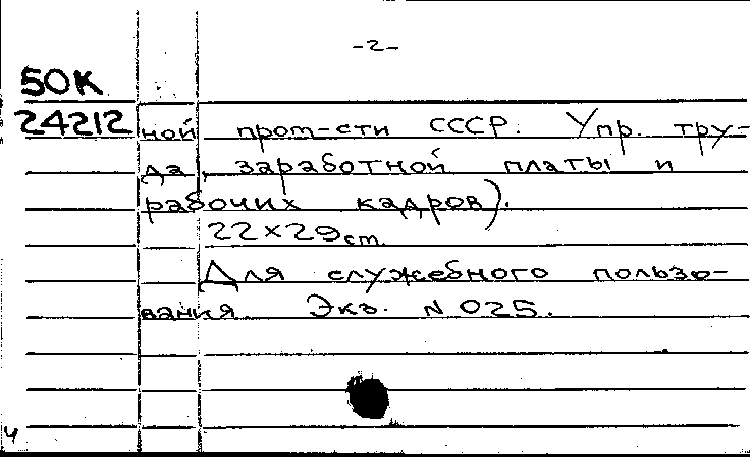 -2-
50К
24212 ной пром-сти СССР. Упр. тру-
да, заработной платы и
рабочих кадров).
22×29 cm.
Для служебного пользо-
вания. Экз. N 025.
Ч